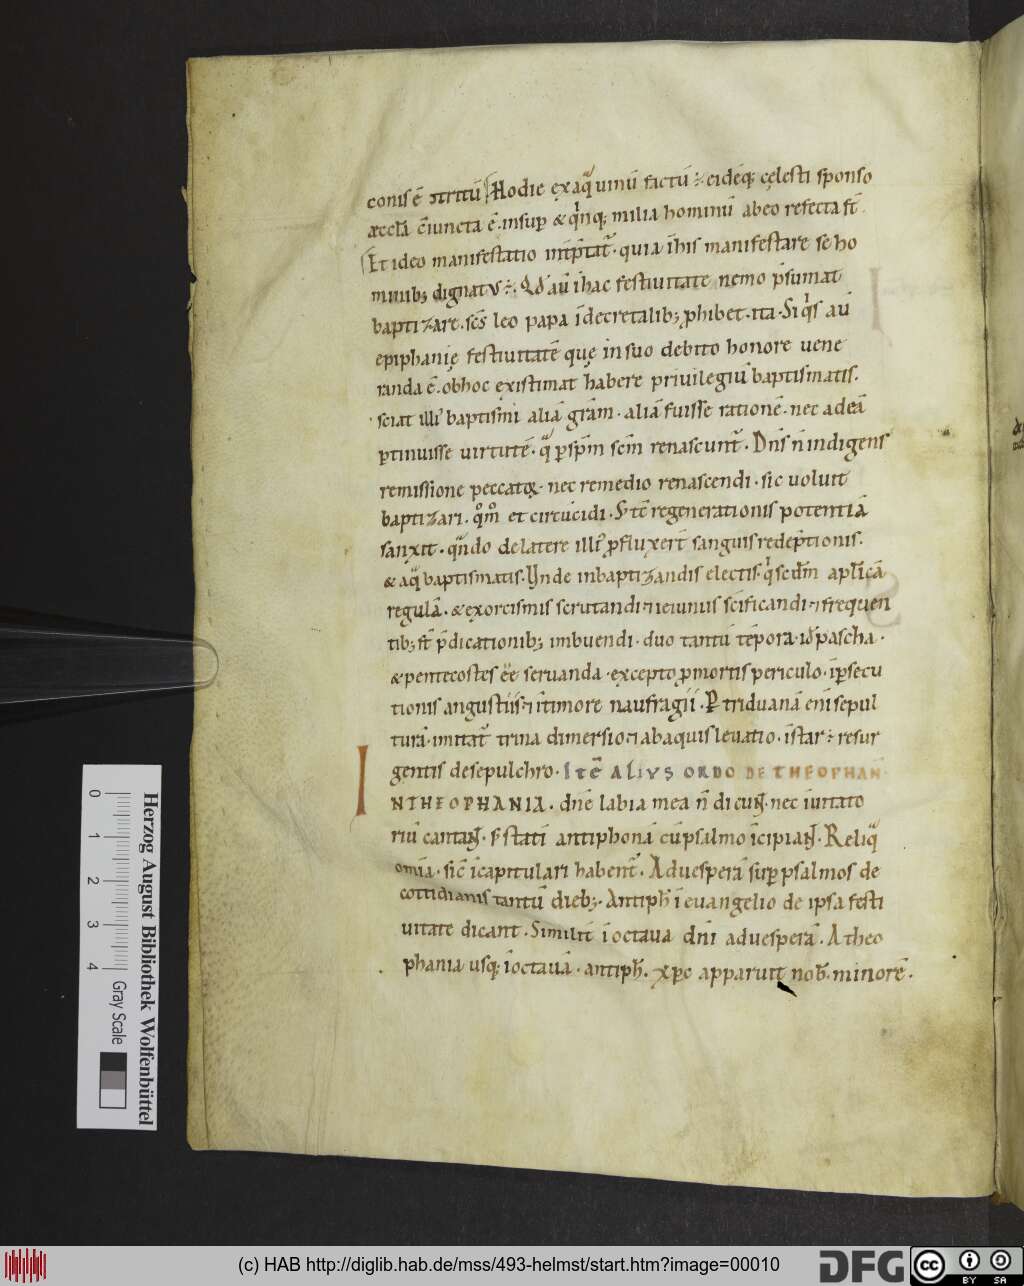 conis ē
Hodie ex aq̄ uinū factū ÷ eidēq; cęlesti sponso
æccła c̄iuncta ē. insup̄ & qinq; milia hominū ab eo refecta sт̄.
Et ideo manifestatio int̄p̄tat̄. quia ī his manifestare se ho
minib; dignatus ÷. Qd̄ aū ī hac festiuitate nemo p̄sumat
baptizare. sc̄s leo papa ī decretalib; phibet. ita. Si qis aū
epiphanię festiuitatē que in suo debito honore uene
randa ē. ob hoc existimat habere priuilegiū baptismatis.
sciat illī baptismi aliā grām. aliā fuisse rationē. nec ad eā
p̄tinuisse uirtutē. q̄ p̄ sp̄m sc̄m renascunt̄. Dn̄s n̄ indigens
remissione peccatoꝝ. nec remedio renascendi. sic uoluit
baptizari. qōm̄ et circūcidi. S; tc̄ regenerationis potentiā
sanxit. qn̄do de latere illī p̄fluxer̄t sanguis redēp̄tionis.
& aq̄ baptismatis. Unde in baptizandis electis. q̄ scd̄m apl̄icā
regulā. & exorcismis scrutandi ⁊ ieiuniis sc̄ificandi ⁊ frequen
tib; sт̄ p̄dicationib; imbuendi. duo tantū tēpora. id̄ pascha.
& pentecostes ēe seruanda. excepto p̄ mortis periculo. ī p̄secu
tionis angustiis ⁊ ī timore naufragii. P̄ triduanā enī sepul
turā. imitat̄ trina dimersio. ⁊ ab aquis leuatio. īstar ÷ resur
gentis de sepulchro. ITĒ ALIUS ORDO DE THEOPHAN
IN THEOPHANIA. dn̄e labia mea n̄ dicunt̄. nec iuitato
riū cantant̄. S; statī antiphonā cū psalmo īcipiant̄. Reliq̄
omīa. sic̄ ī capitulari habent̄. Ad uesperā sup̄ psalmos de
cottidianis tantū dieb;. Antiph̄ ī euangelio de ipsa festi
uitate dicant. Similit̄ ī octaua dn̄i ad uesperā. A theo
phania usq; ī octauā. antiph̄. Xp̄c apparuit nob̄. minorē.
Herzog August Bibliothek Wolfenbüttel
0 1 2 3 4 Gray Scale
(c) HAB http://diglib.hab.de/mss/493-helmst/start.htm?image=00010
DFG
cc BY SA